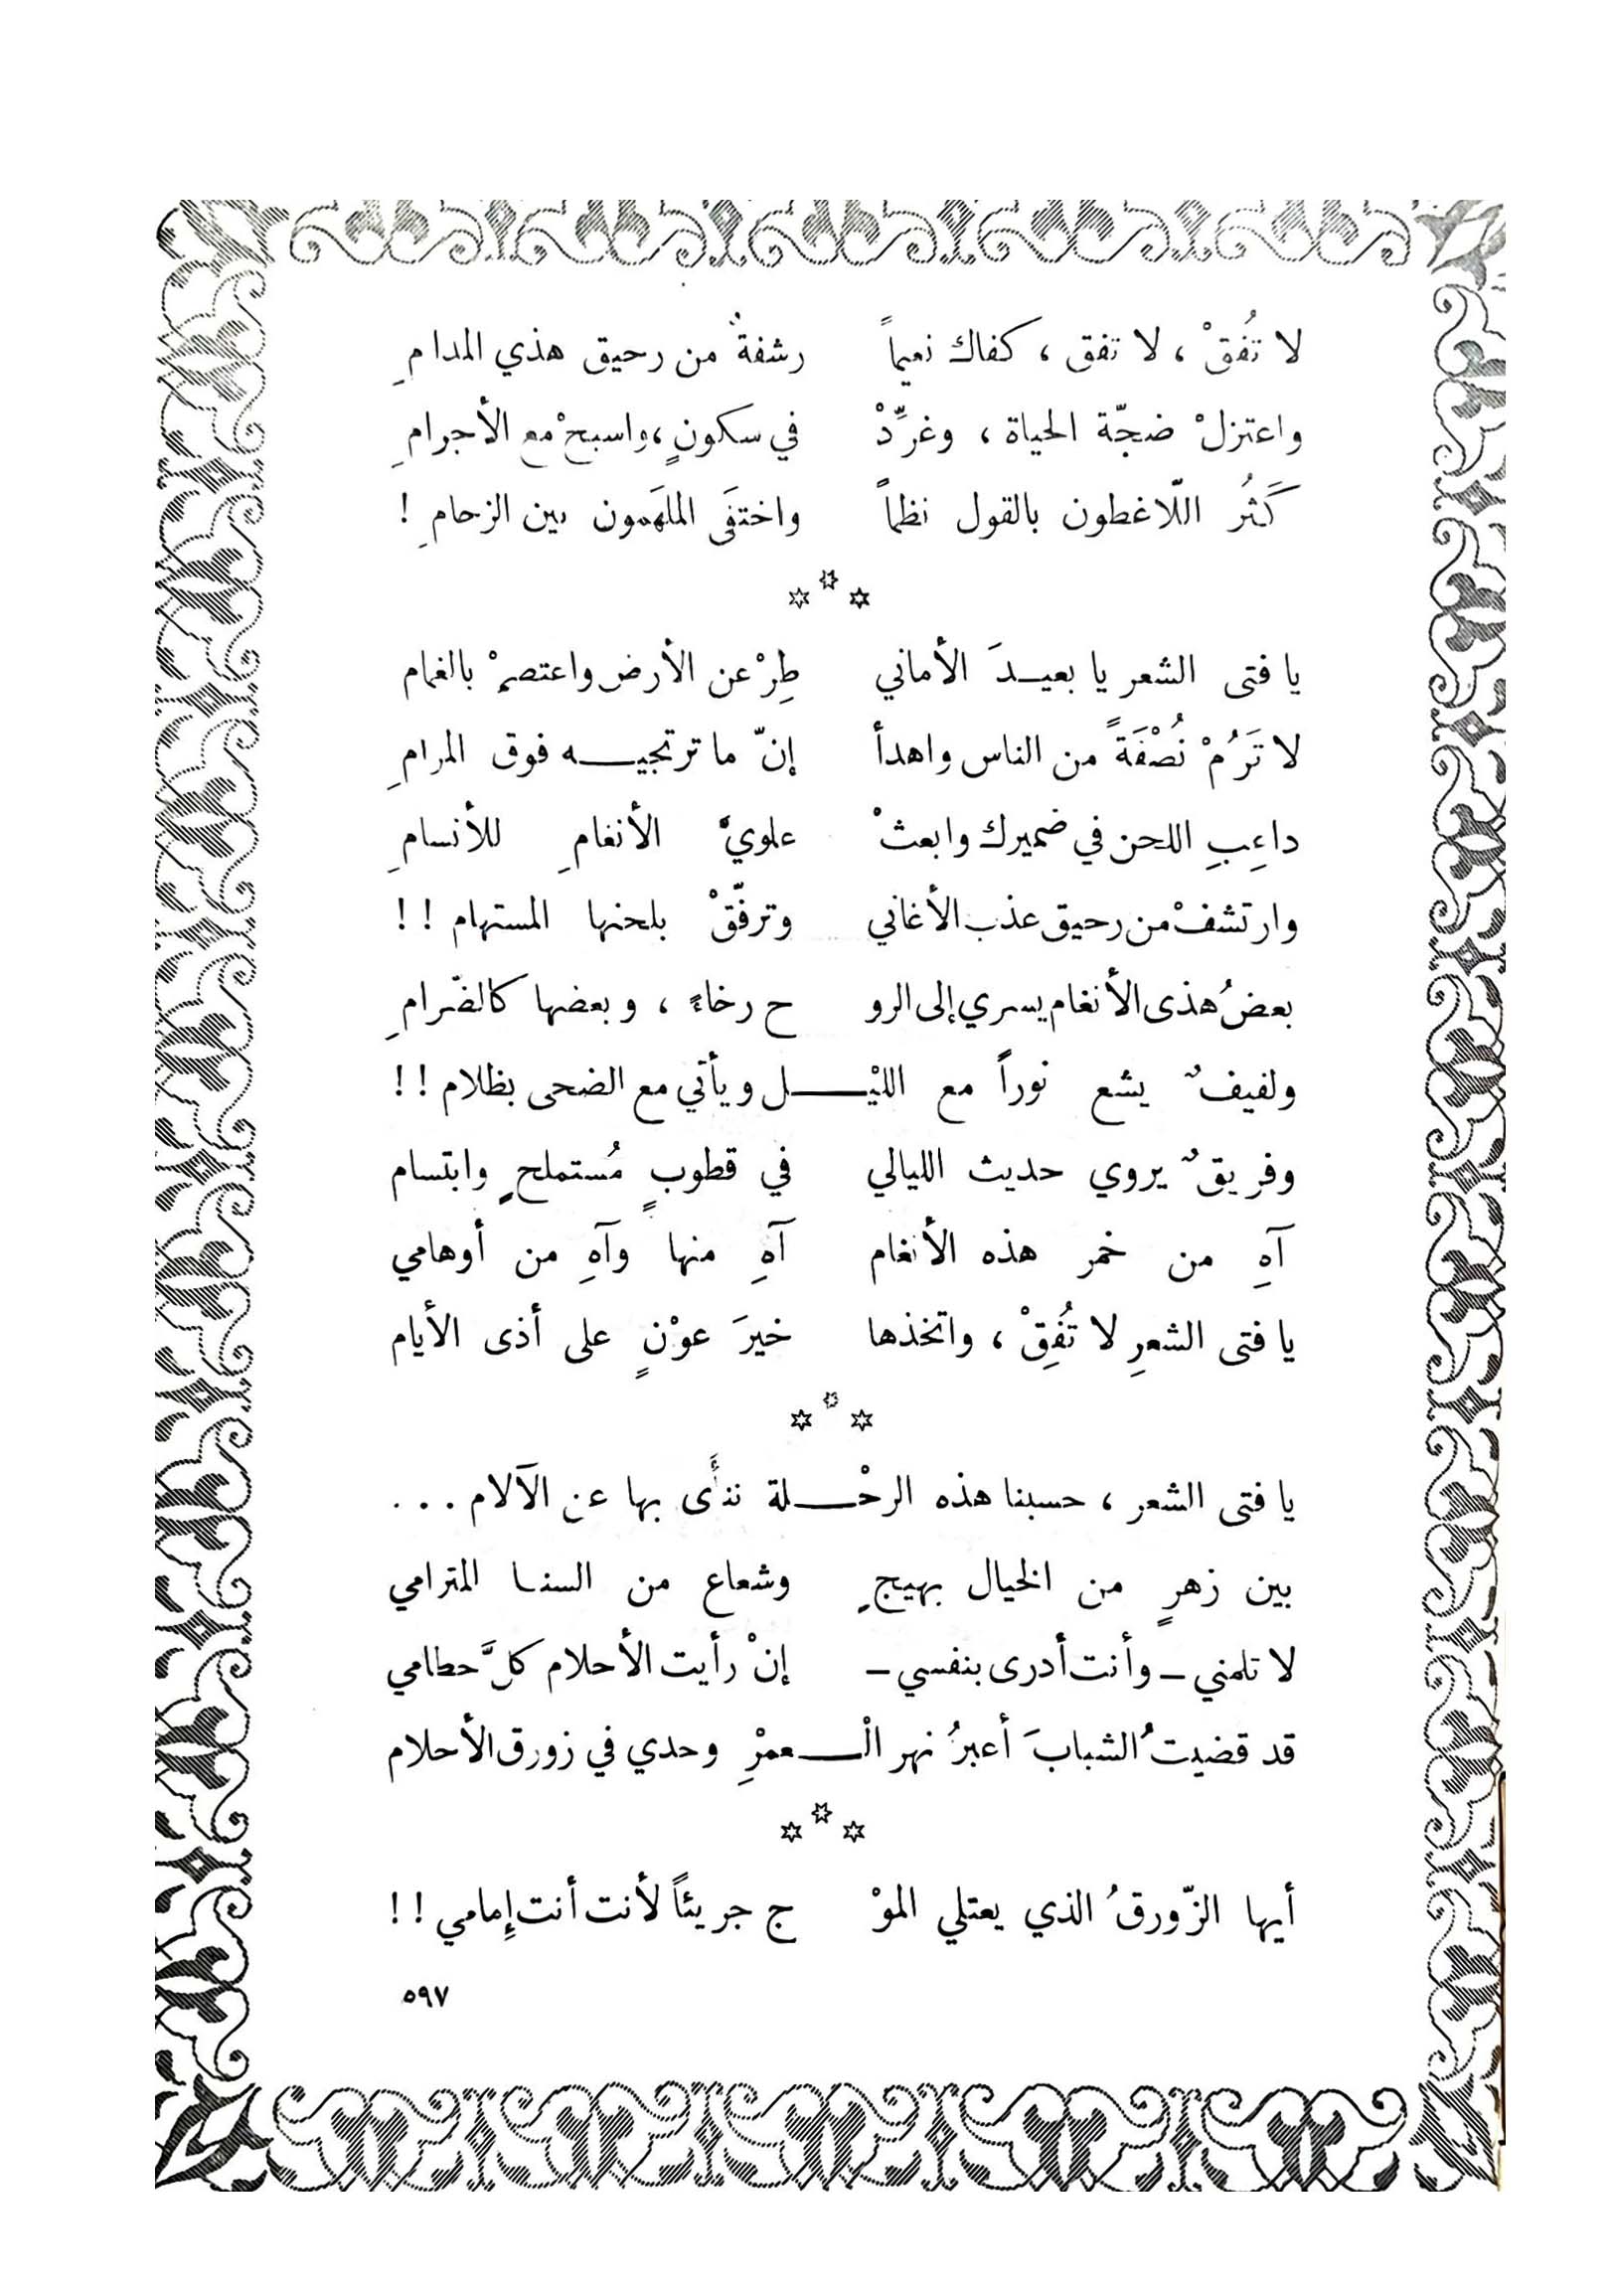 لا تُفقْ ، لا تفق ، كفاك نعيماً رشفةٌ من رحيق هذي المدامِ
واعتزلْ ضجّة الحياة ، وغرِّدْ في سكونٍ ، واسبحْ مع الأجرامِ
كَثُر اللّاغطون بالقول نظماً واختفَى الملهَمون بين الزحامِ !
يا فتى الشعر يا بعيـدَ الأماني طِرْ عن الأرض واعتصمْ بالغمام
لا تَرُمْ نُصْفَةً من الناس واهدأ إنّ ما ترتجيـــه فوق المرامِ
داعِبِ اللحن في ضميرك وابعثْ علويَّ الأنغامِ للأنسامِ
وارتشفْ من رحيق عذب الأغاني وترفّقْ بلحنها المستهام !!
بعضُ هذى الأنغام يسري إلى الرو ح رخاءً ، وبعضها كالضّرامِ
ولفيفٌ يشع نوراً مع الليْــــل ويأتي مع الضحى بظلام !!
وفريقٌ يروي حديث الليالي في قطوبٍ مُستملحٍ وابتسام
آهِ من خمر هذه الأنغام آهِ منها وآهِ من أوهامي
يا فتى الشعرِ لا تُفِقْ ، واتخذها خيرَ عوْنٍ على أذى الأيام
يا فتى الشعر ، حسبنا هذه الرحْـــلة ننأَى بها عن الآلام ...
بين زهرٍ من الخيال بهيجٍ وشعاع من السنـا المترامي
لا تلمني – وأنت أدرى بنفسي – إنْ رأيت الأحلام كلَّ حطامي
قد قضيتُ الشبابَ أعبرُ نهر الْـــعمْرِ وحدي في زورق الأحلام
أيها الزّورقُ الذي يعتلي الموْ ج جريئاً لأنت أنت إِمامي !!
٥٩٧